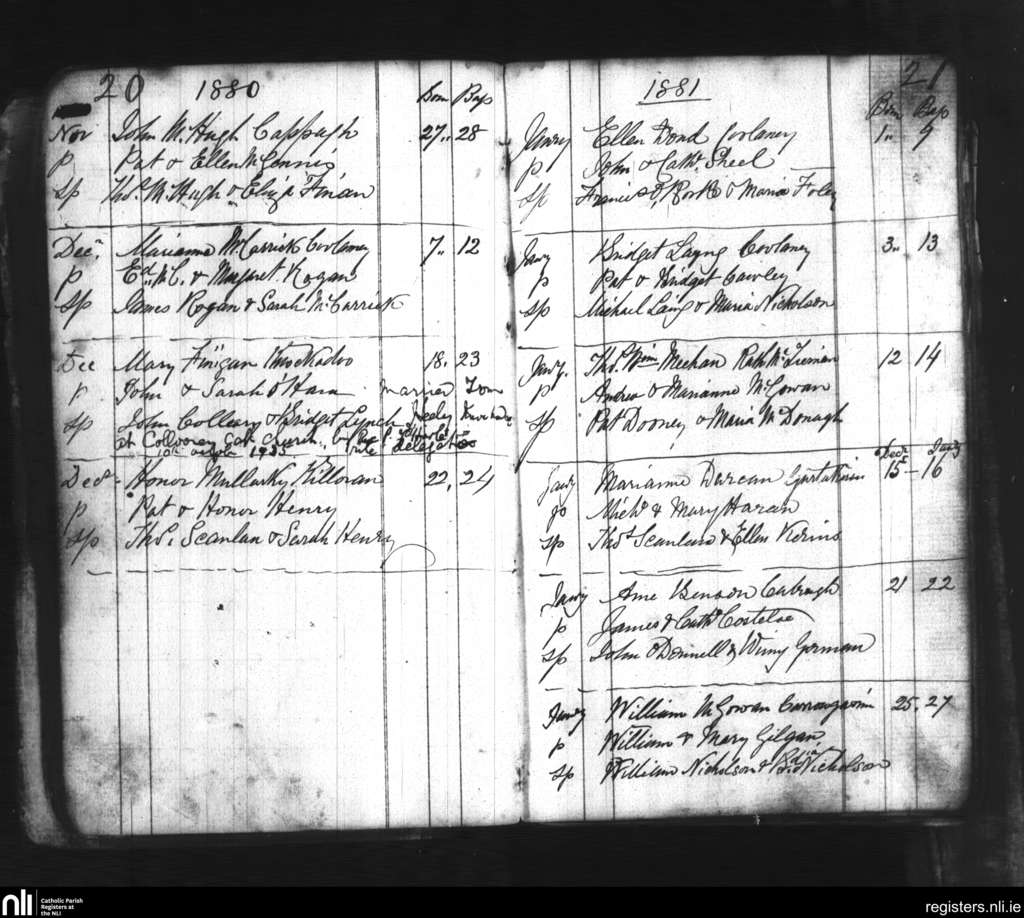 20 1880
Born Bap
Nov John McHugh Cappagh 27 .. 28
p Pat & Ellen McGinnis
Sp Thos. McHugh & Eliza Finan
Decr. Marianne McCarrick Coolaney 7 .. 12
p Ed. McC. & Margaret Rogan
Sp James Rogan & Sarah McCarrick
Dec Mary Finigan Knockadoo 18 . 23
p John & Sarah O'Hara married Tom
Sp John Colleary & Bridget Lynch Neely
at Collooney Cath church, by
delegated
Decr. Honor Mullarky Killoran 22 . 24
p Pat & Honor Henry
Sp Thos. Scanlan & Sarah Henry
21
1881
Born Bap
Jany Ellen Bond Coolaney 1 .. 9
p John & Cath. Sheel
Sp Francis O'Rorke & Maria Foley
Jany Bridget Layng Coolaney 3 .. 13
p Pat & Bridget Cawley
Sp Michael Laing & Maria Nicholson
Jany. Thos. Wm Meehan 12 14
p Andrew & Marianne McGowan
Sp Pat Dooney & Maria McDonagh
Decr Jany
Jany Marianne Durcan 15 – 16
p Michl. & Mary Haran
Sp Thos. Scanlan & Ellen Kerins
Jany Anne Benson Cabragh 21 22
p James & Cath. Costeloe
Sp John O'Donnell & Winny Gorman
Jany William McGowan 25 . 27
p William & Mary Gilgan
Sp William Nicholson & Nicholson
nli Catholic Parish
Registers at
the NLI
registers.nli.ie